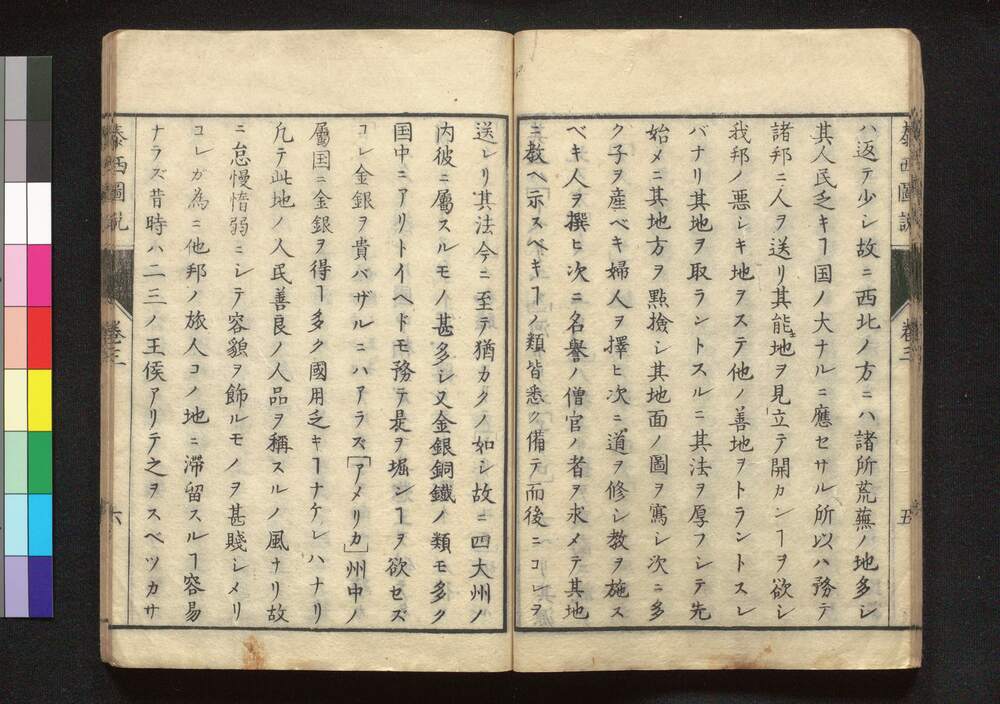 泰西圖説
卷三
五
ハ返テ少シ故ニ西北ノ方ニハ諸所荒蕪ノ地多シ
其人民乏キヿ国ノ大ナルニ應セサル所以ハ務テ
諸邦ニ人ヲ送リ其能地ヲ見立テ開カンヿヲ欲シ
我邦ノ悪シキ地ヲステ他ノ善地ヲトラントスレ
バナリ其地ヲ取ラントスルニ其法ヲ厚フシテ先
始メニ其地方ヲ點撿シ其地面ノ圖ヲ寫シ次ニ多
ク子ヲ産ベキ婦人ヲ擇ヒ次ニ道ヲ修シ教ヲ施ス
ベキ人ヲ撰ヒ次ニ名譽ノ僧官ノ者ヲ求メテ其地
ニ教ヘ示スベキヿノ類皆悉ク備テ而後ニコレヲ
送レリ其法今ニ至テ猶カクノ如シ故ニ四大州ノ
内彼ニ屬スルモノ甚多シ又金銀銅鐵ノ類モ多ク
国中ニアリトイヘドモ務テ是ヲ堀ンヿヲ欲セズ
コレ金銀ヲ貴バザルニハアラズ「アメリカ」州中ノ
屬国ニ金銀ヲ得ヿ多ク國用乏キヿナケレハナリ
凢テ此地ノ人民善良ノ人品ヲ稱スルノ風ナリ故
ニ怠慢惰弱ニシテ容貌ヲ飾ルモノヲ甚賤シメリ
コレガ為ニ他邦ノ旅人コノ地ニ滞留スルヿ容易
ナラズ昔時ハ二三ノ王侯アリテ之ヲスベツカサ
泰西圖説
卷三
六